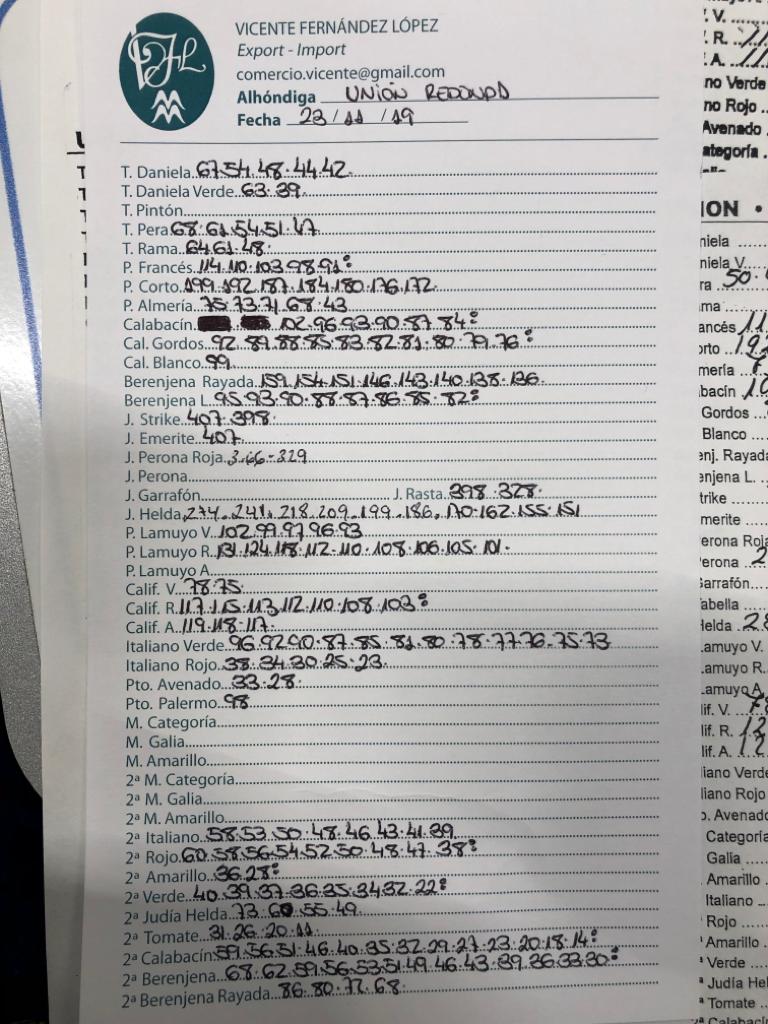 VICENTE FERNÁNDEZ LÓPEZ
Export - Import
comercio.vicente@gmail.com
Alhóndiga UNIÓN REDONDA
Fecha 23/11/19
T. Daniela 67.54.48.44.42
T. Daniela Verde 63.39
T. Pintón
T. Pera 68.61.54.51.47
T. Rama 64.61.48
P. Francés 114.110.103.98.91:
P. Corto 199.192.187.184.180.176.172
P. Almería 75.73.71.68.43
Calabacín 102.96.93.90.87.84:
Cal. Gordos 92.89.88.85.83.82.81.80.79.76:
Cal. Blanco 99
Berenjena Rayada 159.154.151.146.143.140.138.136
Berenjena L. 95.93.90.88.87.86.85.82:
J. Strike 407.398
J. Emerite 407
J. Perona Roja 366-329
J. Perona
J. Garrafón J. Rasta 398.328
J. Helda 274.241.218.209.199.186.170.162.155.151
P. Lamuyo V. 102.99.97.96.93
P. Lamuyo R. 131.124.118.112.110.108.106.105.101
P. Lamuyo A.
Calif. V. 78.75
Calif. R. 117.115.113.112.110.108.103:
Calif. A. 119.118.117
Italiano Verde 96.92.90.87.85.81.80.78.77.76.75.73
Italiano Rojo 38.34.30.25.23
Pto. Avenado 33.28
Pto. Palermo 98
M. Categoría
M. Galia
M. Amarillo
2ª M. Categoría
2ª M. Galia
2ª M. Amarillo
2ª Italiano 58.53.50.48.46.43.41.39
2ª Rojo 60.58.56.54.52.50.48.47.38:
2ª Amarillo 36.28:
2ª Verde 40.39.37.36.35.34.32.22:
2ª Judía Helda 73.60.55.49
2ª Tomate 31.26.20.11
2ª Calabacín 59.56.51.46.40.35.32.29.27.23.20.18.14:
2ª Berenjena 68.62.59.56.53.51.49.46.43.39.36.33.30:
2ª Berenjena Rayada 86.80.72.68